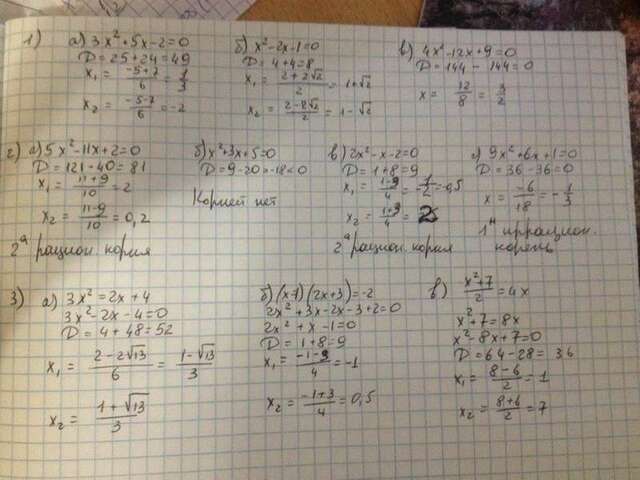 1) а) 3x² + 5x - 2 = 0
D = 25 + 24 = 49
x₁ = (-5+7)/6 = 1/3
x₂ = (-5-7)/6 = -2
б) x² - 2x - 1 = 0
D = 4 + 4 = 8
x₁ = (2+2√2)/2 = 1+√2
x₂ = (2-2√2)/2 = 1-√2
в) 4x² - 12x + 9 = 0
D = 144 - 144 = 0
x = 12/8 = 3/2
2) а) 5x² - 11x + 2 = 0
D = 121 - 40 = 81
x₁ = (11+9)/10 = 2
x₂ = (11-9)/10 = 0,2
2а рацион. корня
б) x² + 3x + 5 = 0
D = 9 - 20 = -18 < 0
Корней нет
в) 2x² - x - 2 = 0
D = 1 + 8 = 9
x₁ = (1-3)/4 = -1/2 = 0,5
x₂ = (1+3)/4 = 2
2а рацион. корня
г) 9x² + 6x + 1 = 0
D = 36 - 36 = 0
x = -6/18 = -1/3
1н иррацион.
корень
3) а) 3x² = 2x + 4
3x² - 2x - 4 = 0
D = 4 + 48 = 52
x₁ = (2-2√13)/6 = (1-√13)/3
x₂ = (1+√13)/3
б) (x-1)(2x+3) = -2
2x² + 3x - 2x - 3 + 2 = 0
2x² + x - 1 = 0
D = 1 + 8 = 9
x₁ = (-1-3)/4 = -1
x₂ = (-1+3)/4 = 0,5
в) (x²+7)/2 = 4x
x² + 7 = 8x
x² - 8x + 7 = 0
D = 64 - 28 = 36
x₁ = (8-6)/2 = 1
x₂ = (8+6)/2 = 7